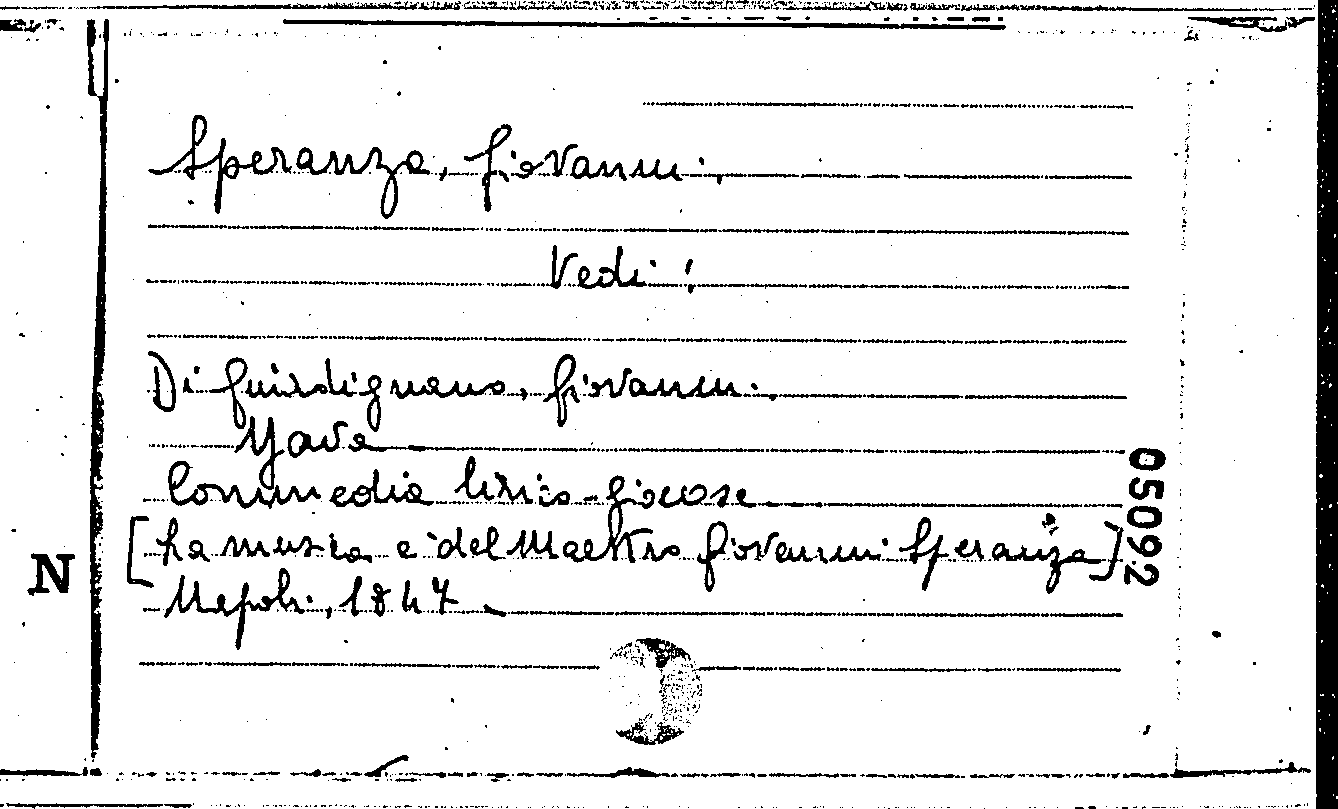 Speranza, Giovanni.
Vedi:
Di Giurdignano, Giovanni.
Yava
Commedia lirico-giocosa
[La musica e del Maestro Giovanni Speranza]
Napoli, 1847
N
05092